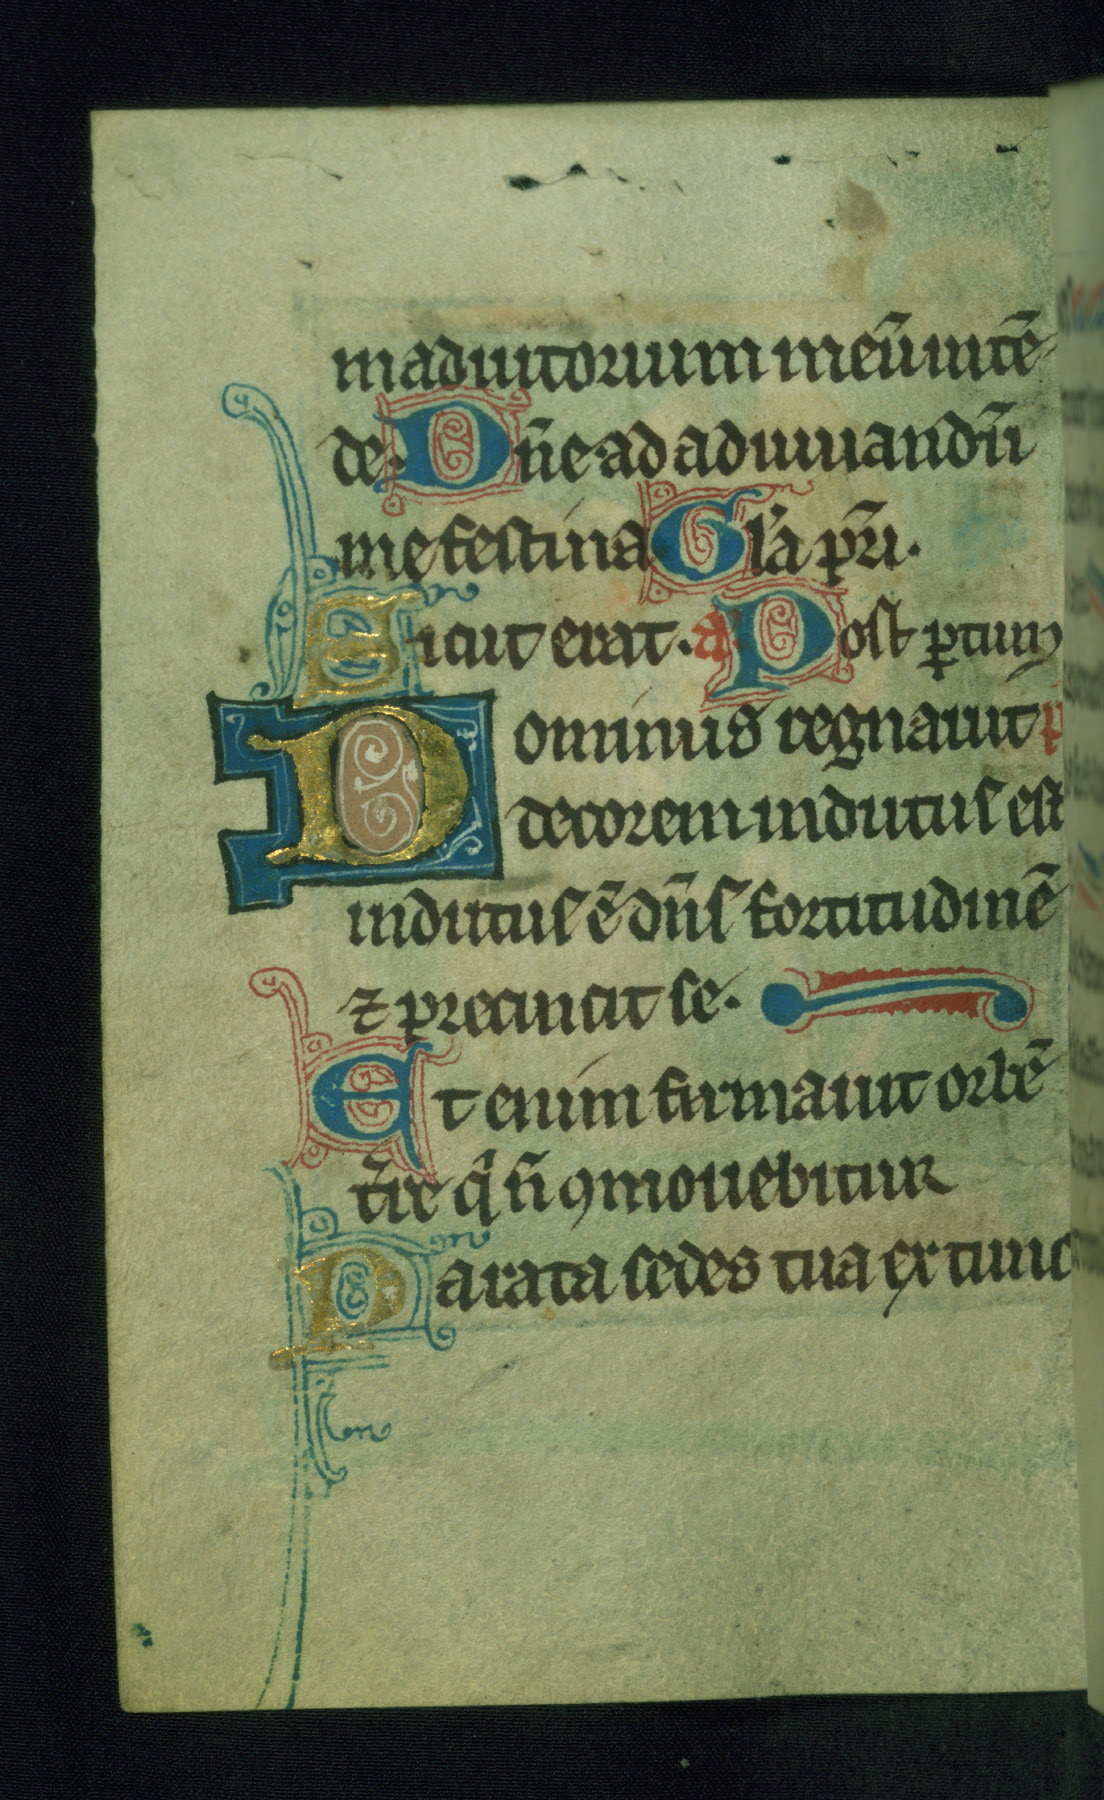 in adiutorium meū intē
de. Dn̄e ad adiuuandū
me festina Gl'a pr̄i.
Sicut erat. a' Post ꝑtum
Dominus regnauit
decorem indutus est
indutus ē dn̄s fortitudinē
⁊ precincit se.
Et enim firmauit orbē
t̄re q̇ n̄ ꝯmouebitur
Parata sedes tua ex tunc